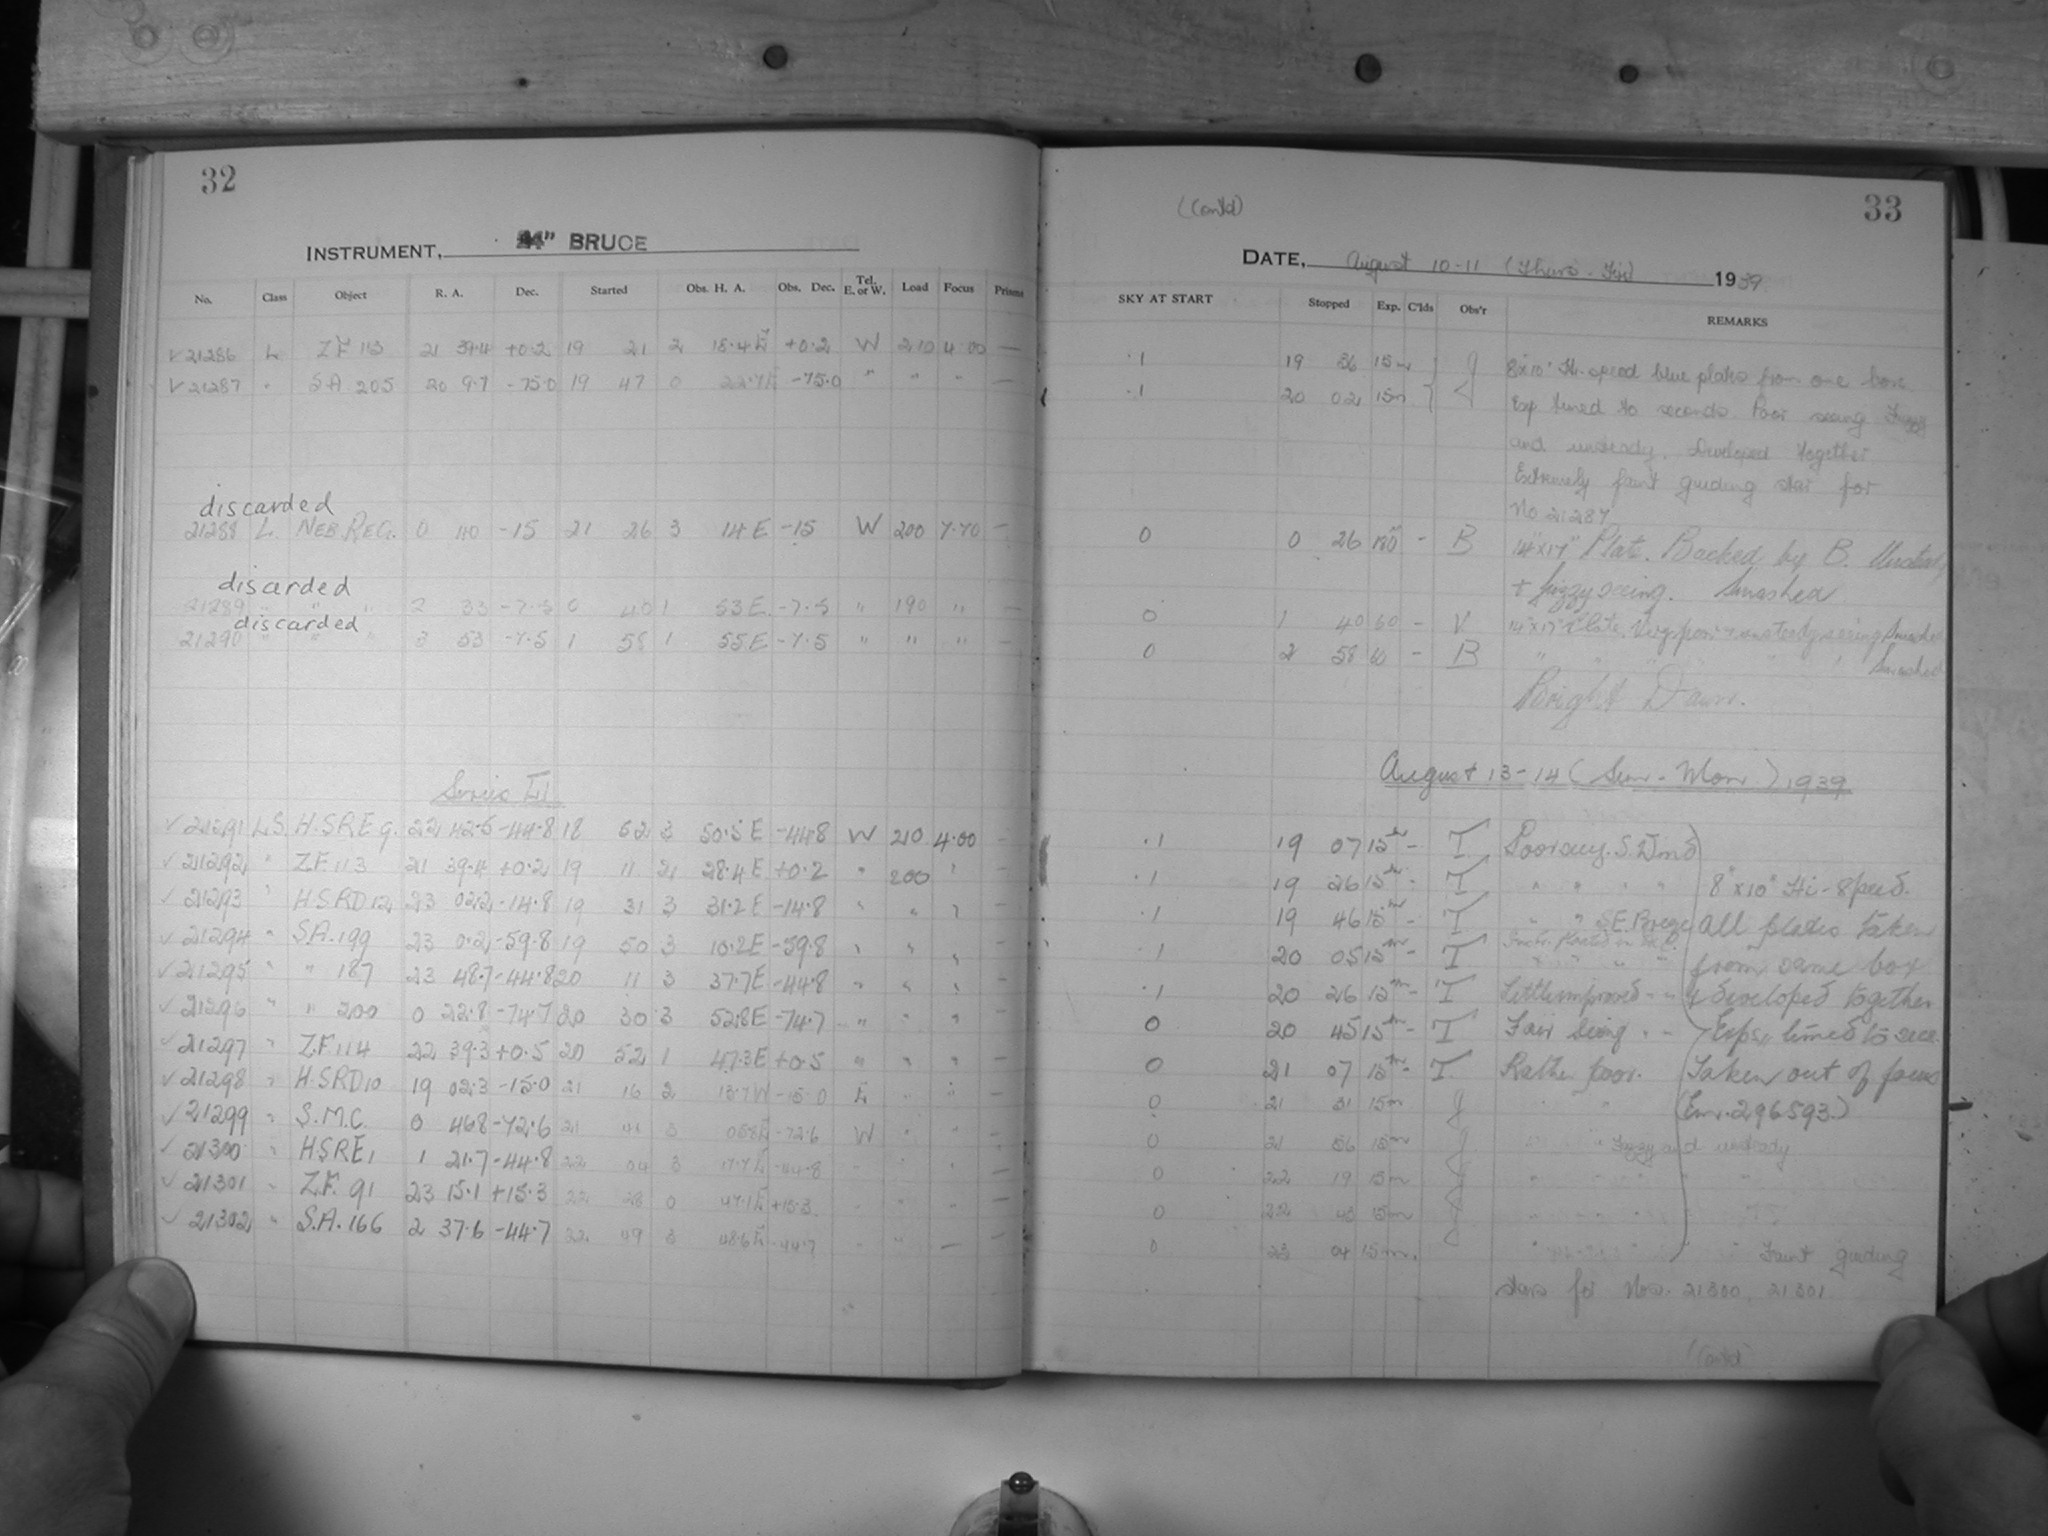 32
INSTRUMENT, 24" BRUCE
No. Class Object R. A. Dec. Started Obs. H. A. Obs. Dec. Tel. E. or W. Load Focus Prisms
✓21286 L ZF 113 21 39.4 +0.2 19 21 2 18.4E +0.2 W 210 4.00 —
✓21287 " SA 205 20 9.7 -75.0 19 47 0 22.7E -75.0 " " " —
discarded
21288 L NEB. REG. 0 40 -15 21 26 3 14E -15 W 200 7.70 —
discarded
21289 " " " 2 33 -7.5 0 40 1 53E -7.5 " 190 " —
discarded
21290 " " " 3 53 -7.5 1 58 1 55E -7.5 " " " —
Series
✓21291 L.S. H.S.R.E 9. 22 42.5 -44.8 18 52 3 50.5E -44.8 W 210 4.00 -
✓21292 " Z.F. 113 21 39.4 +0.2 19 11 2 28.4E +0.2 " 200 "
✓21293 " H.S.R.D 12 23 02.2 -14.8 19 31 3 31.2E -14.8 " " "
✓21294 " S.A. 199 23 0.2 -59.8 19 50 3 10.2E -59.8 " " "
✓21295 " " 187 23 48.7 -44.8 20 11 3 37.7E -44.8 " " "
✓21296 " " 200 0 22.8 -74.7 20 30 3 52.8E -74.7 " " "
✓21297 " Z.F. 114 22 39.3 +0.5 20 52 1 47.3E +0.5 " " "
✓21298 " H.S.R.D 10 19 02.3 -15.0 21 16 2 13.7W -15.0 E " " -
✓21299 " S.M.C. 0 46.8 -72.6 21 41 3 05.8E -72.6 W " " -
✓21300 " H.S.R.E 1 1 21.7 -44.8 22 04 3 17.7E -44.8 " " " -
✓21301 " Z.F. 91 23 15.1 +15.3 22 28 0 47.1E +15.3 " " " -
✓21302 " S.A. 166 2 37.6 -44.7 22 49 3 48.6E -44.7 " " — -
33
(Contd)
DATE, August 10-11 (Thurs - Fri) 1939
SKY AT START Stopped Exp. C'lds Obs'r REMARKS
.1 19 36 15m J 8"x10" Hi-speed blue plates from one box
.1 20 02 15m J Exp timed to seconds Poor seeing Fuzzy
and unsteady. Developed together
Extremely faint guiding star for
No 21287
0 0 26 180 - B 14"x17" Plate. Backed by B. Unsteady
+ fuzzy seeing. Smashed
0 1 40 60 - V 14"x17" Plate. Very poor + unsteady seeing Smashed
0 2 58 60 - B " " " " " Smashed
Bright Dawn.
August 13-14 (Sun - Mon.) 1939
.1 19 07 15m - T Poor S. Wind
.1 19 26 15m - T " " " " 8"x10" Hi-Speed.
.1 19 46 15m - T " " S.E. Breeze All plates taken
.1 20 05 15m - T " " " " from same box
.1 20 26 15m - T Little improved - - & developed together
0 20 45 15m - T Fair seeing - - Exps. timed to secs.
0 21 07 15m - T Rather poor. Taken out of focus
0 21 31 15m J " " (Em. 296593.)
0 21 56 15m J " " Fuzzy and unsteady
0 22 19 15m J " " " " "
0 22 43 15m J " " " " "
0 23 04 15m J " " " " Faint guiding
stars for Nos. 21300, 21301
(Contd)